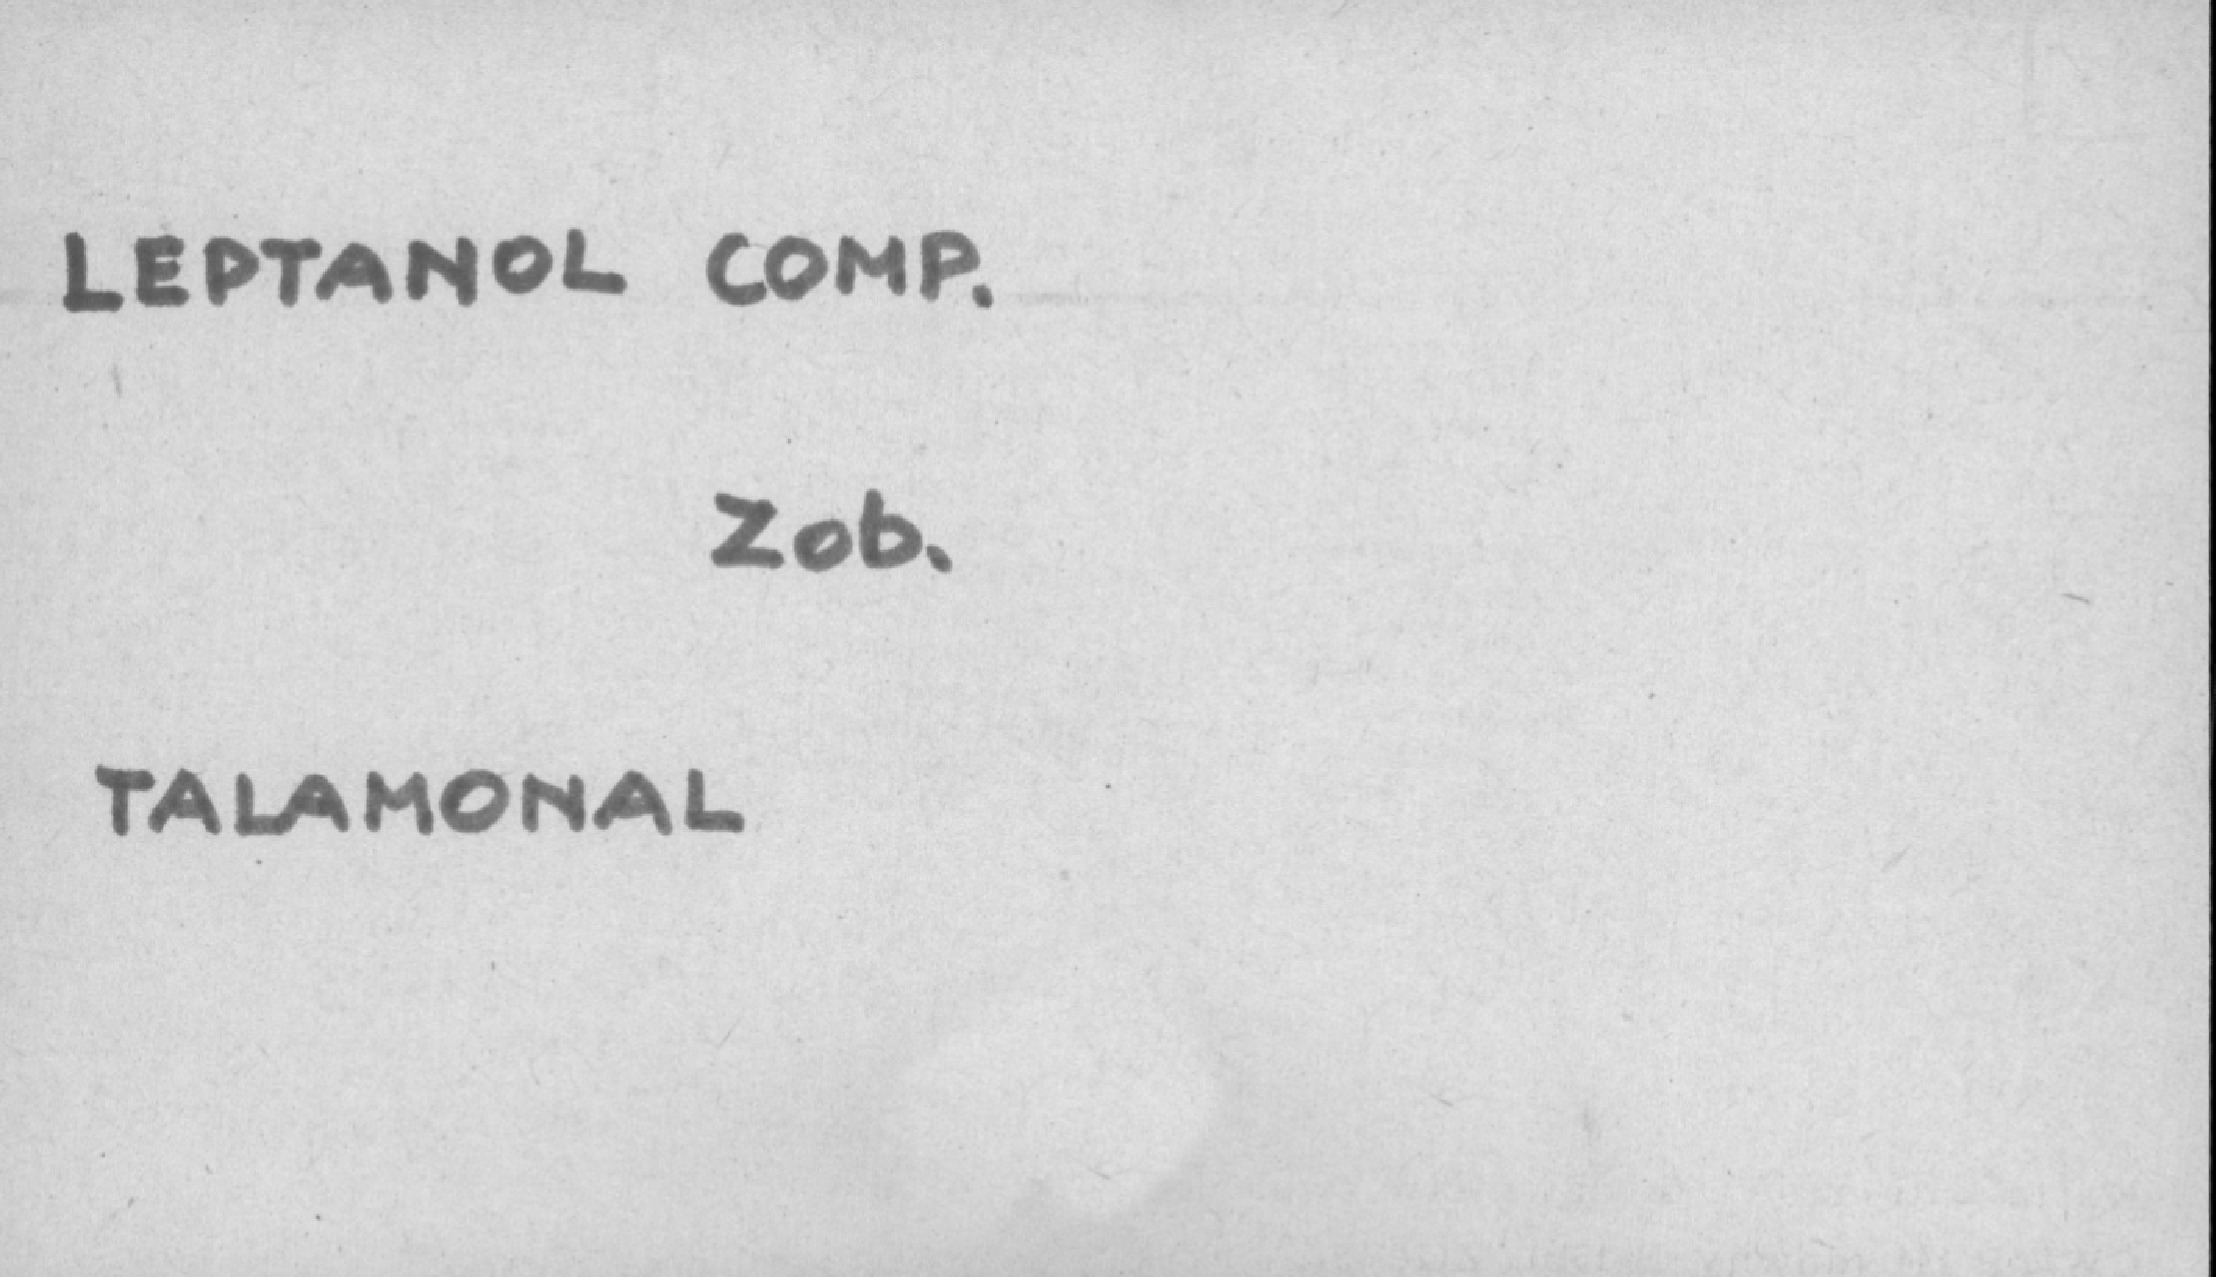 LEPTANOL COMP.
Zob.
TALAMONAL